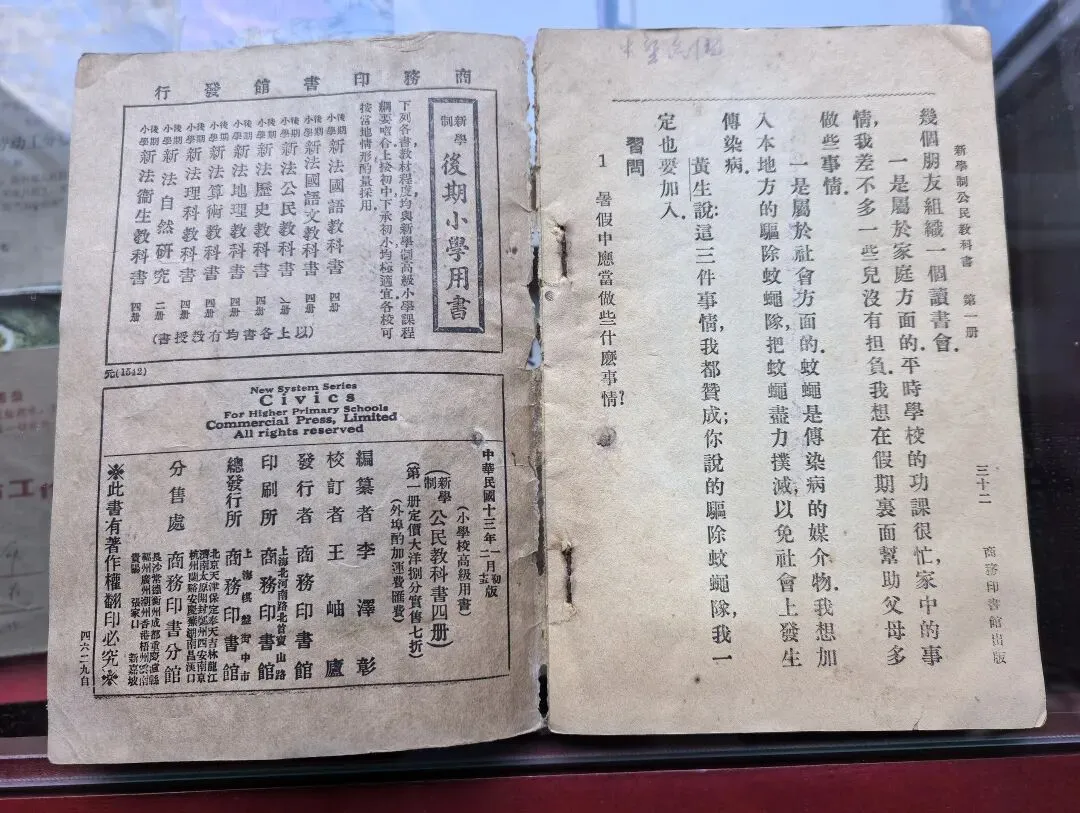 幾個朋友組織一個讀書會.
一是屬於家庭方面的.平時學校的功課很忙,家中的事
情,我差不多一些兒沒有担負.我想在假期裏面幫助父母多
做些事情.
一是屬於社會方面的.蚊蠅是傳染病的媒介物.我想加
入本地方的驅除蚊蠅隊,把蚊蠅盡力撲滅,以免社會上發生
傳染病.
黃生說:這三件事情,我都贊成;你說的驅除蚊蠅隊,我一
定也要加入.
習問
1 暑假中應當做些什麽事情?
新學制公民教科書 第一册 三十二 商務印書館出版
商務印書館發行
新學制 後期小學用書
下列各書教材程度,均與新學制高級小學課程
綱要暗合上接初中下承初小均極適宜各校可
按當地情形酌量採用.
後期小學 新法國語教科書 四册
後期小學 新法國語文教科書 四册
後期小學 新法公民教科書
後期小學 新法歷史教科書 四册
後期小學 新法地理教科書 四册
後期小學 新法算術教科書 四册
後期小學 新法理科教科書 四册
後期小學 新法自然研究 二册
後期小學 新法衞生教科書 四册
(以上各書均有教授書)
元(1542)
New System Series
Civics
For Higher Primary Schools
Commercial Press, Limited
All rights reserved
中華民國十三年
(小學校高級用書)
新學制 公民教科書四册
(第一册定價大洋捌分實售七折)
(外埠酌加運費匯費)
編纂者 李澤彰
校訂者 王岫廬
發行者 商務印書館
上海北河南路北首寶山路
印刷所 商務印書館
上海棋盤街中市
總發行所 商務印書館
北京天津保定奉天吉林龍江
濟南太原開封鄭州西安南京
杭州蘭谿安慶蕪湖南昌漢口
分售處 商務印書分館
長沙常德衡州成都重慶瀘縣
福州廣州潮州香港梧州雲南
貴陽 張家口 新嘉坡
※此書有著作權翻印必究※
四六二九自